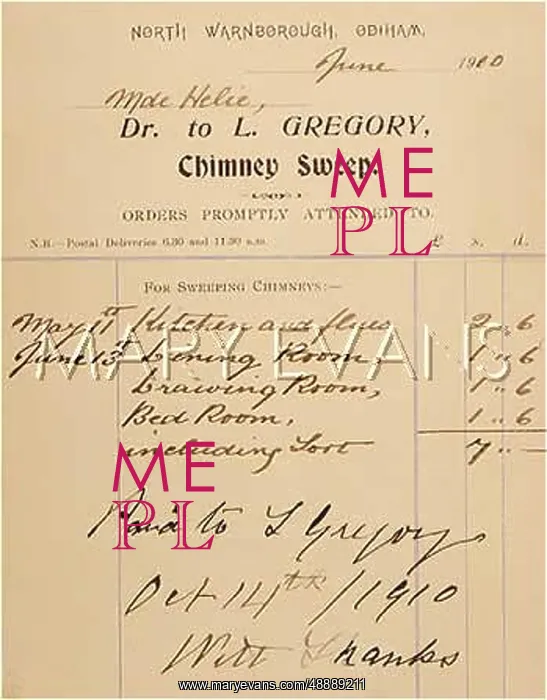 NORTH WARNBOROUGH, ODIHAM,
June 1910
Mde Helie,
Dr. to L. GREGORY,
Chimney Sweep.
ORDERS PROMPTLY ATTENDED TO.
N.B.—Postal Deliveries 6.30 and 11.30 a.m. £ s. d.
FOR SWEEPING CHIMNEYS:—
May 11th Kitchen and flues 2 .. 6
June 13th Dining Room, 1 .. 6
Drawing Room, 1 .. 6
Bed Room, 1 .. 6
including Soot 7 .. —
Paid to L Gregory
Oct 14th / 1910
With Thanks
ME
PL
MARY EVANS
ME
PL
www.maryevans.com/48889211